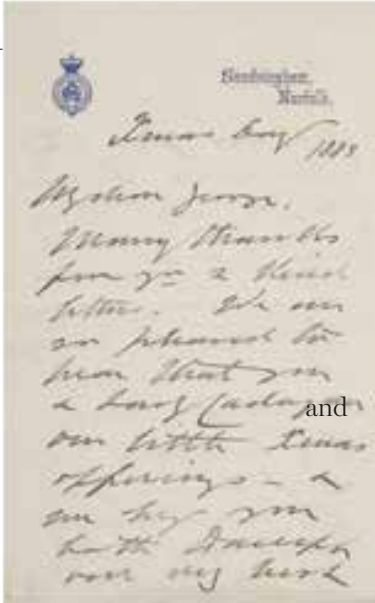 Sandringham,
Norfolk.
Xmas Day 1883
My dear George,
Many thanks
for yr & kind
letter. We are
so pleased to
hear that you
& Lady
and
our little Xmas
offerings - &
we beg you
both
our my best